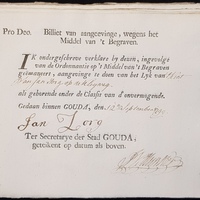 Pro Deo. Billiet van aangevinge, wegens het
Middel van 't Begraven.
IK ondergeschreve verklare by dezen, ingevolge
van de Ordonnantie op 't Middel van 't Begraven
geëmaneert, aangevinge te doen van het Lyk van
als gehorende onder de Classis van d'onvermogende.
Gedaan binnen GOUDA, den
Jan
Ter Secretarye der Stad GOUDA,
geteikent op datum als boven.